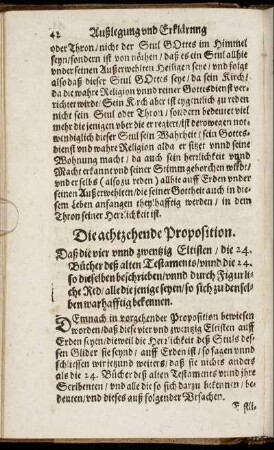 42 Außlegung vnd Erklärung
oder Thron / nicht der Stul GOttes im Himmel
seyn / sondern ist von nöthen / daß es ein Stul allhie
vnder seinen Außerwehlten Heiligen seye / vnd folge
also daß dieser Stul GOttes seye / da sein Kirch /
da die wahre Religion vnnd reiner Gottesdienst ver-
richtet wird / Sein Kirch aber ist eygentlich zu reden
nicht sein Stul oder Thron / sondern bedeutet viel
mehr die jenigen vber die er regiert / ist derowegen not-
wendiglich dieser Stul sein Wahrheit / sein Gottes-
dienst vnd wahre Religion alda er sitzt vnnd seine
Wohnung macht / da auch sein herrlichkeit vnnd
Macht erkannt vnd seiner Stimm gehorchen wirdt /
vnd er selbs (also zu reden) allhie auff Erden vnder
seinen Außerwehlten / die seiner Gottheit auch in die-
sem Leben anfangen theylhafftig werden / in dem
Thron seiner Herrlichkeit ist.
Die achtzehende Proposition.
Daß die vier vnnd zwentzig Eltisten / die 24.
Bücher deß alten Testaments / vnnd die 24.
so dieselben beschrieben / vnnd durch Figur li-
che Red / alle die jenige seyen / so sich zu densel-
ben warhafftig bekennen.
DEmnach in vorgehender Proposition bewiesen
worden / daß diese vier vnd zwentzig Eltisten auff
Erden seyen / dieweil die Herrlichkeit deß Stuls dessen
Glider sie seynd / auff Erden ist / so sagen vnnd
schliessen wir jetzund weiters / daß sie nichts anders
als die 24. Bücher deß alten Testaments vnnd ihre
Scribenten / vnd alle die so sich darzu bekennen / be-
deuten / vnd dieses auß folgender Vrsachen.